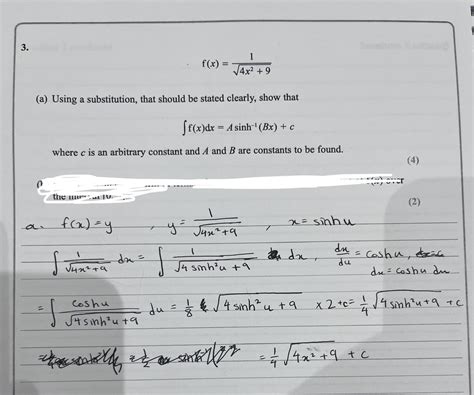 3.
f(x) = 1/√(4x² + 9)
(a) Using a substitution, that should be stated clearly, show that
∫f(x)dx = A sinh⁻¹(Bx) + c
where c is an arbitrary constant and A and B are constants to be found.
(4)
over
the
(2)
a. f(x) = y , y = 1/√(4x²+9) , x = sinh u
∫ 1/√(4x²+9) dx = ∫ 1/√(4 sinh²u + 9) dx , dx/du = cosh u,
du = cosh u du
= ∫ cosh u/√(4 sinh²u + 9) du = 1/8 √(4 sinh²u + 9) × 2 + c = 1/4 √(4 sinh²u + 9) + c
= 1/4 √(4x² + 9) + c